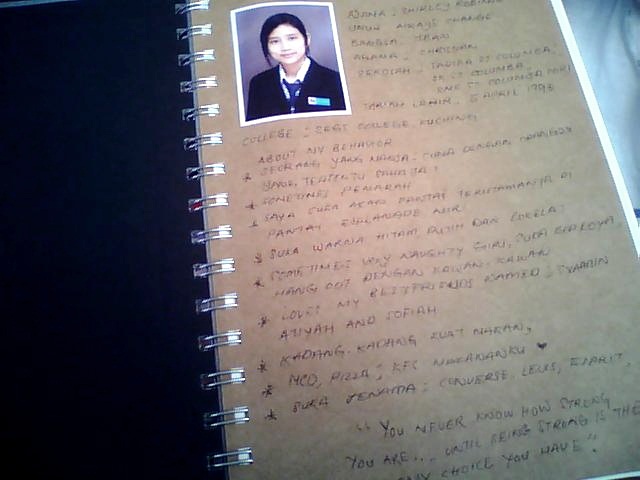 NAMA : SHIRLEY ROBINSON
UMUR ALWAYS CHANGE
BANGSA : IBAN
AGAMA : CHRISTIAN
SEKOLAH : TADIKA ST COLUMBA,
SK ST COLUMBA,
SMK ST COLUMBA MIRI
TARIKH LAHIR : 5 APRIL 1993
COLLEGE : SEGI COLLEGE, KUCHING
ABOUT MY BEHAVIOR
* SEORANG YANG MANJA. CUMA DENGAN ORANG2X
YANG TERTENTU SAHAJA.
* SOMETIMES PEMARAH
* SAYA SUKA AKAN PANTAI TERUTAMANYA DI
PANTAI ESPLANADE MIRI
* SUKA WARNA HITAM PUTIH DAN COKELAT
* SOMETIMES VERY NAUGHTY GIRL, SUKA
HANG OUT DENGAN KAWAN-KAWAN
* LOVES MY BESTFRIENDS NAMED : SYAABIN
ATIYAH AND SOFIAH
* KADANG-KADANG KUAT MAKAN,
* MCD, PIZZA, KFC MAKANANKU ♥
* SUKA JENAMA : CONVERSE, LEVIS, ESPRIT,
" YOU NEVER KNOW HOW STRONG
YOU ARE... UNTIL BEING STRONG IS THE
ONLY CHOICE YOU HAVE "